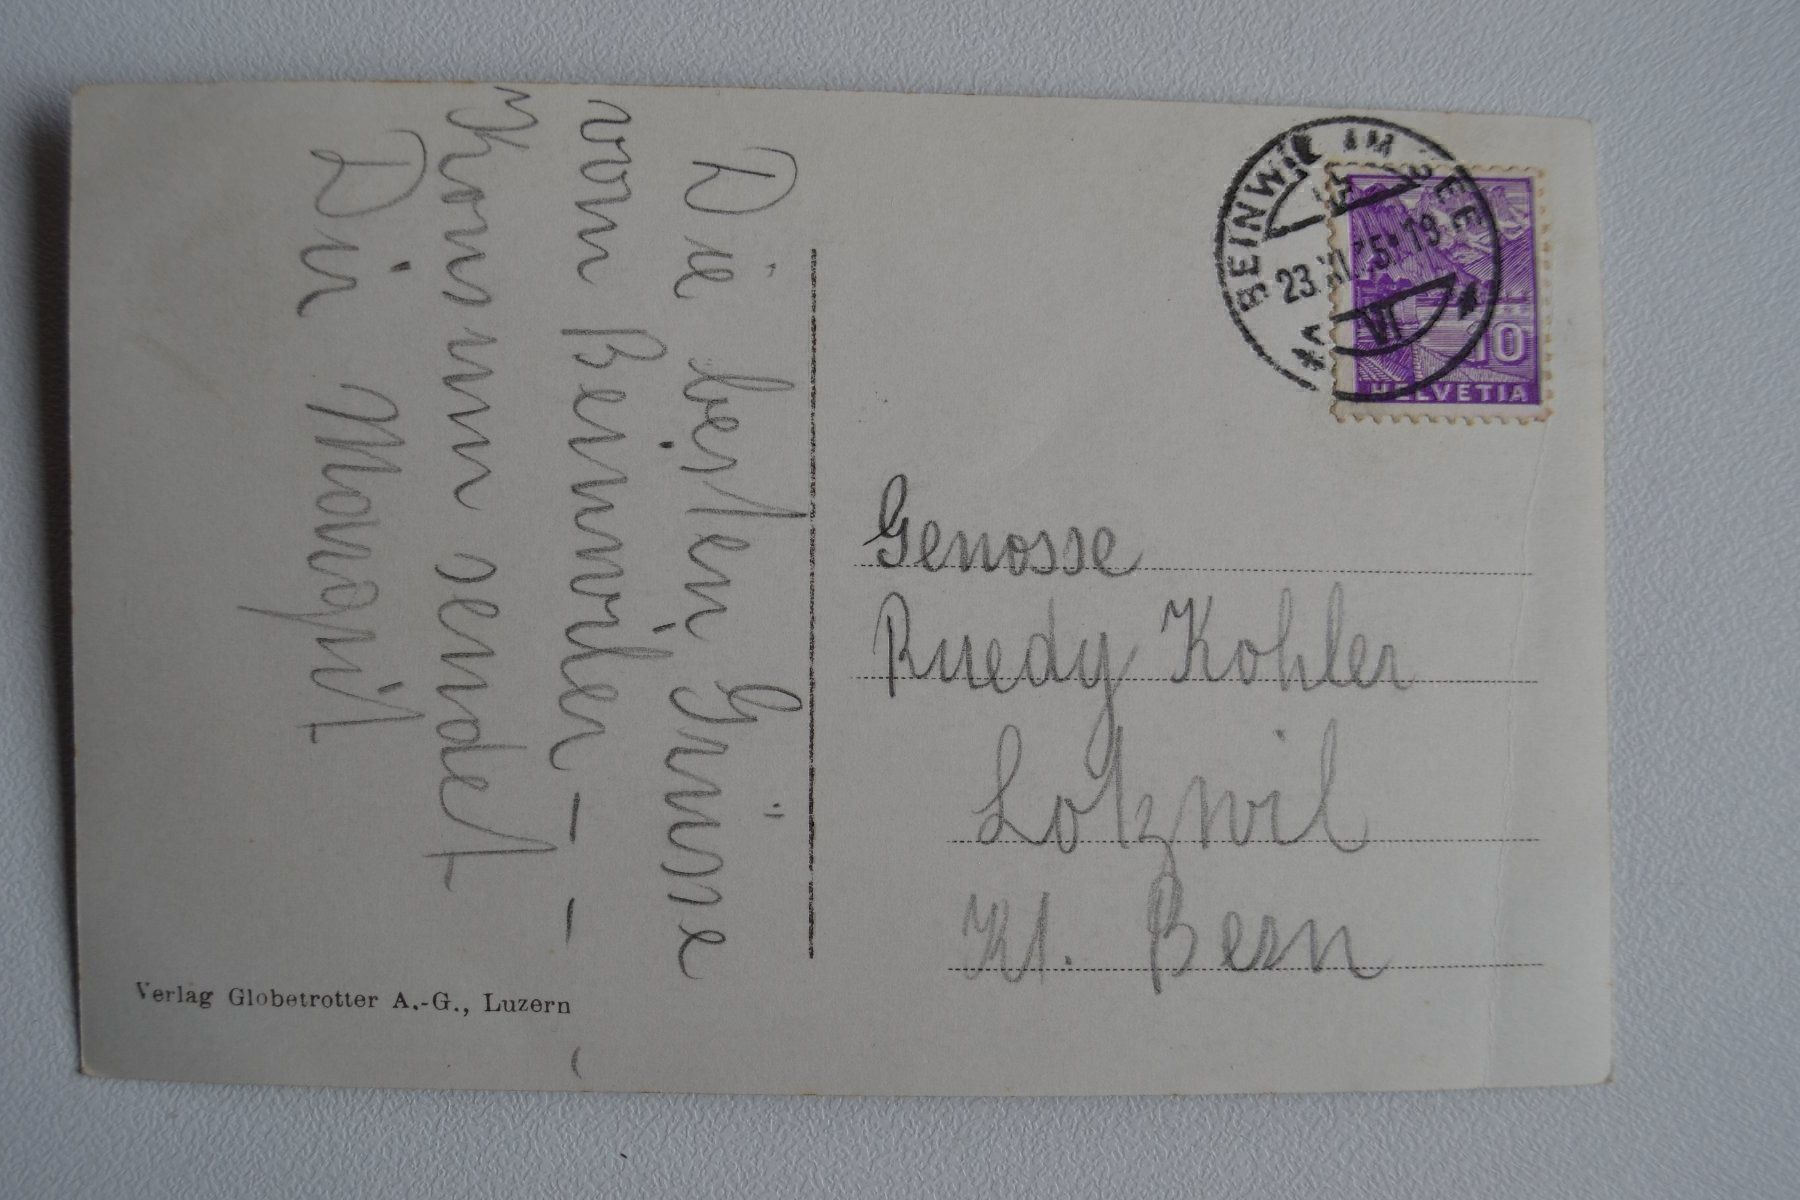 Die besten Grüsse
vom Beinwiler - - -
Konsum sendet
Dir Margrit
Verlag Globetrotter A.-G., Luzern
BEINWIL AM SEE
VI
10
HELVETIA
Genosse
Ruedy Kohler
Lotzwil
Kt. Bern